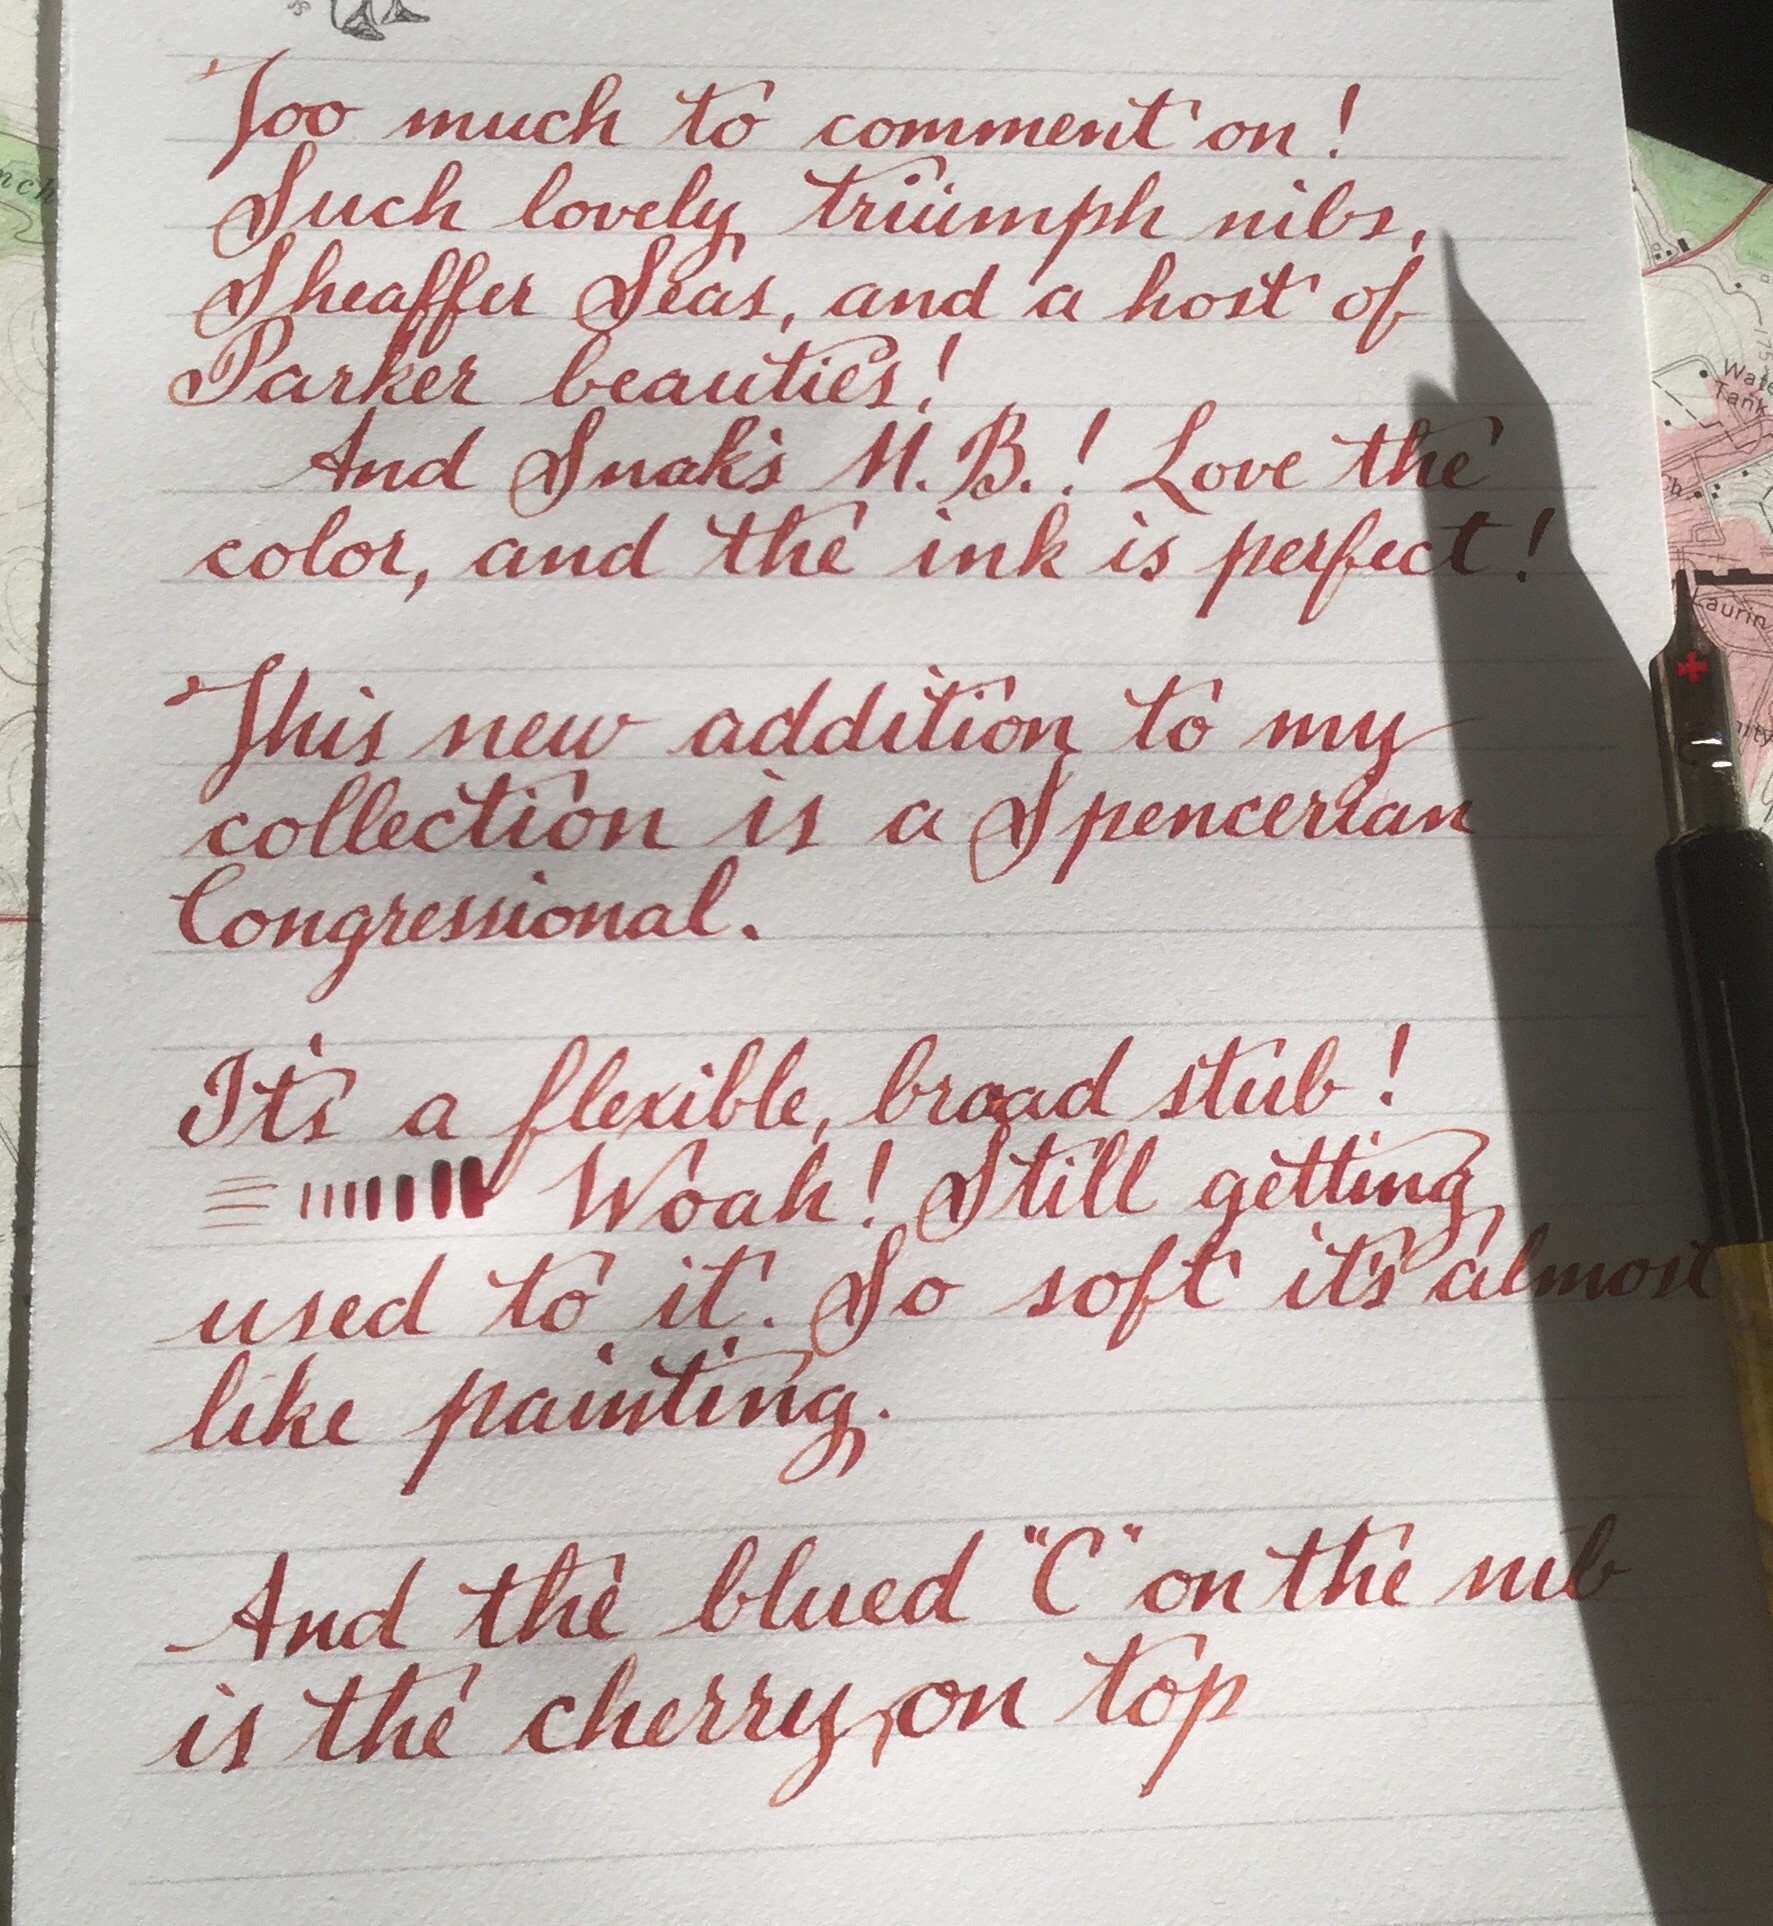 Too much to comment on!
Such lovely triumph nibs,
Sheaffer Seas, and a host of
Parker beauties!
And Snak's M.B.! Love the
color, and the ink is perfect!
This new addition to my
collection is a Spencerian
Congressional.
It's a flexible, broad stub!
Woah! Still getting
used to it. So soft it's almost
like painting.
And the blued "C" on the nib
is the cherry on top
Water
Tank
Laurin